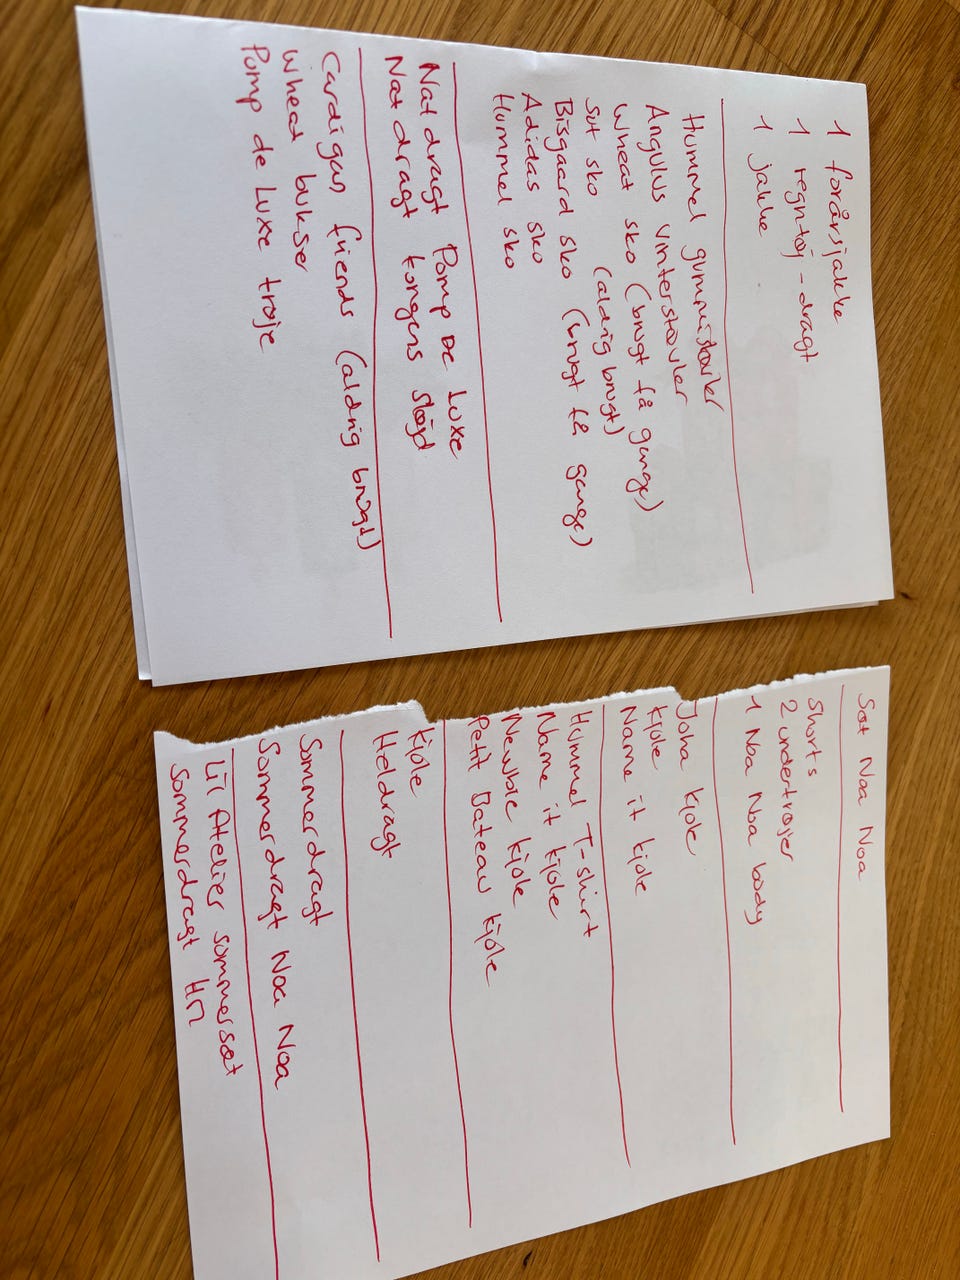 1 forårsjakke
1 regntøj-dragt
1 jakke
Hummel gummistøvler
Angulus vinterstøvler
Wheat sko (brugt få gange)
Sut sko (aldrig brugt)
Bisgaard sko (brugt få gange)
Adidas sko
Hummel sko
Natdragt Pomp De Luxe
Natdragt kongens sløjd
Cardigan friends (aldrig brugt)
Wheat bukser
Pomp de Luxe trøje
Sæt Noa Noa
Shorts
2 undertrøjer
1 Noa Noa body
Joha kjole
Kjole
Name it kjole
Hummel T-shirt
Name it kjole
Newbie kjole
Petit Bateau kjole
Kjole
Heldragt
Sommerdragt
Sommerdragt Noa Noa
Lil Atelier sommersæt
Sommerdragt HM